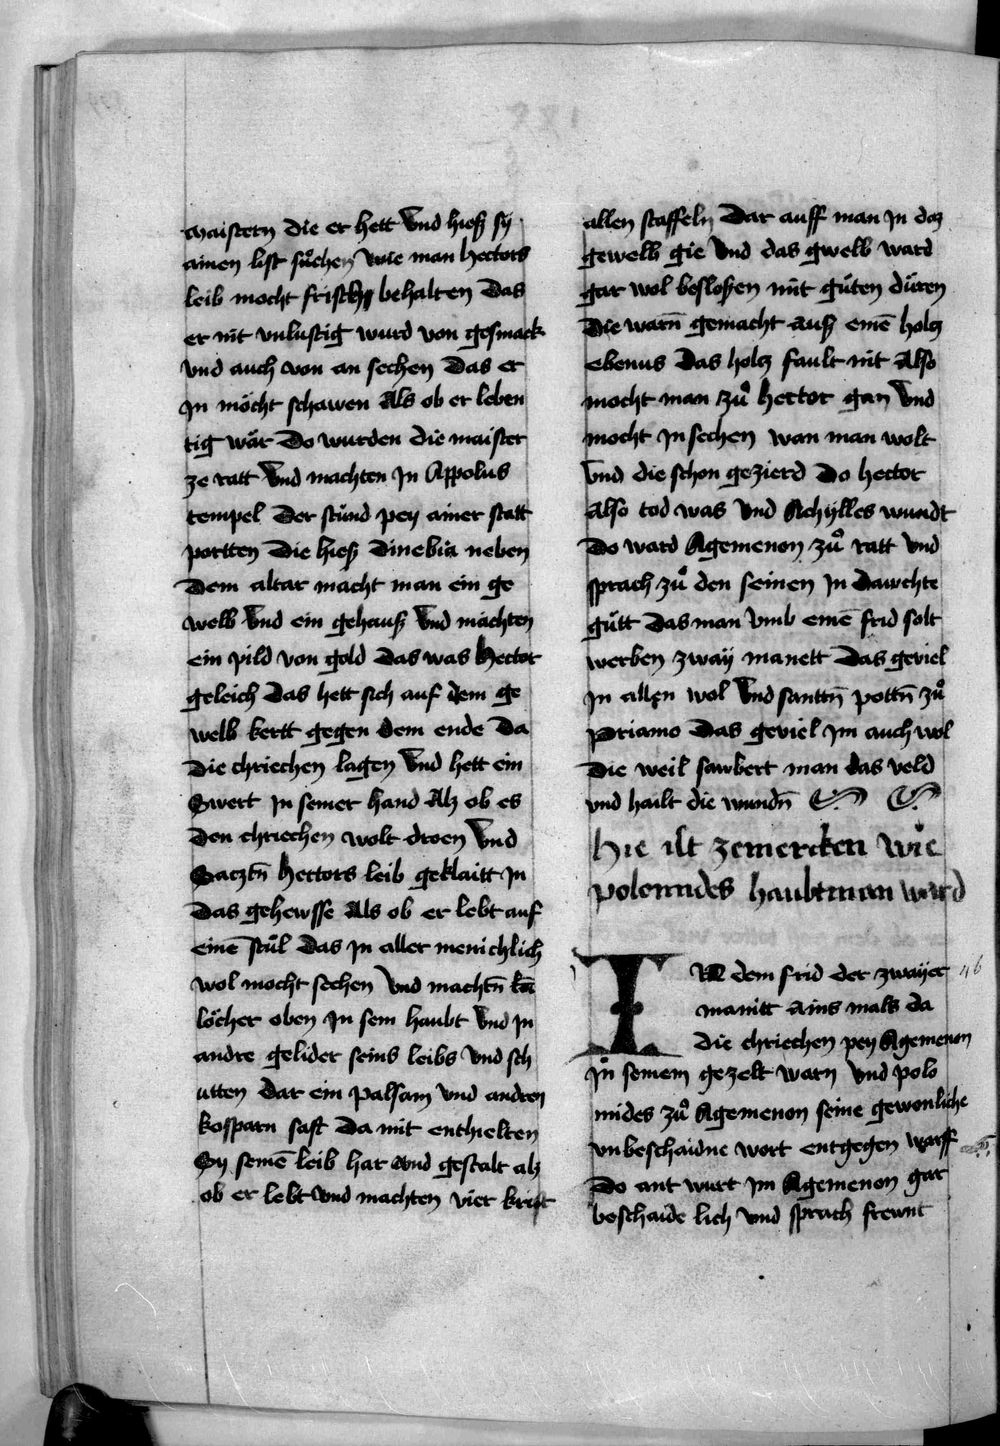 maistern die er hett Vnd hieß sy
ainen list sůchen wie man hectors
leib mocht frisch behalten Das
er nit vnlustig wurd von gesmack
vnd auch von an sechen Das er
In möcht schawen Als ob er leben
tig wär Do wurden die maister
ze ratt Vnd machten In Appolus
tempel Der stůnd pey ainer statt
portten Die hieß Dinebia neben
Dem altar macht man ein ge
welb Vnd ein gehauß Vnd machten
ein pild von gold das was Hector
geleich Das hett sich auf dem ge
welb kertt gegen dem ende Da
Die chriechen lagen Vnd hett ein
Swert In seiner hand Alz ob es
Den chriechen wolt droen Vnd
Saczñ hectors leib geklaitt In
Das gehewsse Als ob er lebt auf
einē stůl Das In aller menichlich
wol mocht sechen Vnd machtñ
löcher oben In sein haubt Vnd In
andre gelider seins leibs Vnd sch
utten Dar ein palsam Vnd andren
kosparn saft Da mit enthielten
Sy seinē leib har Vnd gestalt alz
ob er lebt Vnd machten vier
allen staffeln Dar auff man In daz
gewelb gie Vnd das gwelb ward
gar wol besloßen mit gůten düren
Die warñ gemacht auß einē holcz
ebenus Das holcz fault nit Also
mocht man zů hector gan Vnd
mocht In sechen wan man wolt
Vnd die schon gezierd Do hector
Also tod was Vnd Achylles wundt
Do ward Agemenon zů ratt Vnd
sprach zů den seinen In dawchte
gůtt Das man Vmb einē frid solt
werben zway manett Das geviel
In allen wol Vnd santtñ pottñ zů
Priamo Das geviel Im auch wol
Die weil sawbert man das veld
vnd hailt die wundñ
Hie ist zemercken wie
polomides haubtman ward
IN dem frid der zwayer 46
manitt ains mals da
die chriechen pey Agemenon
In seinem gezelt warn Vnd polo
mides zů Agemenon seine gewonliche
vnbeschaidne wort entgegen warff
Do ant wurt Im Agemenon gar
beschaide lich Vnd sprach frewnt